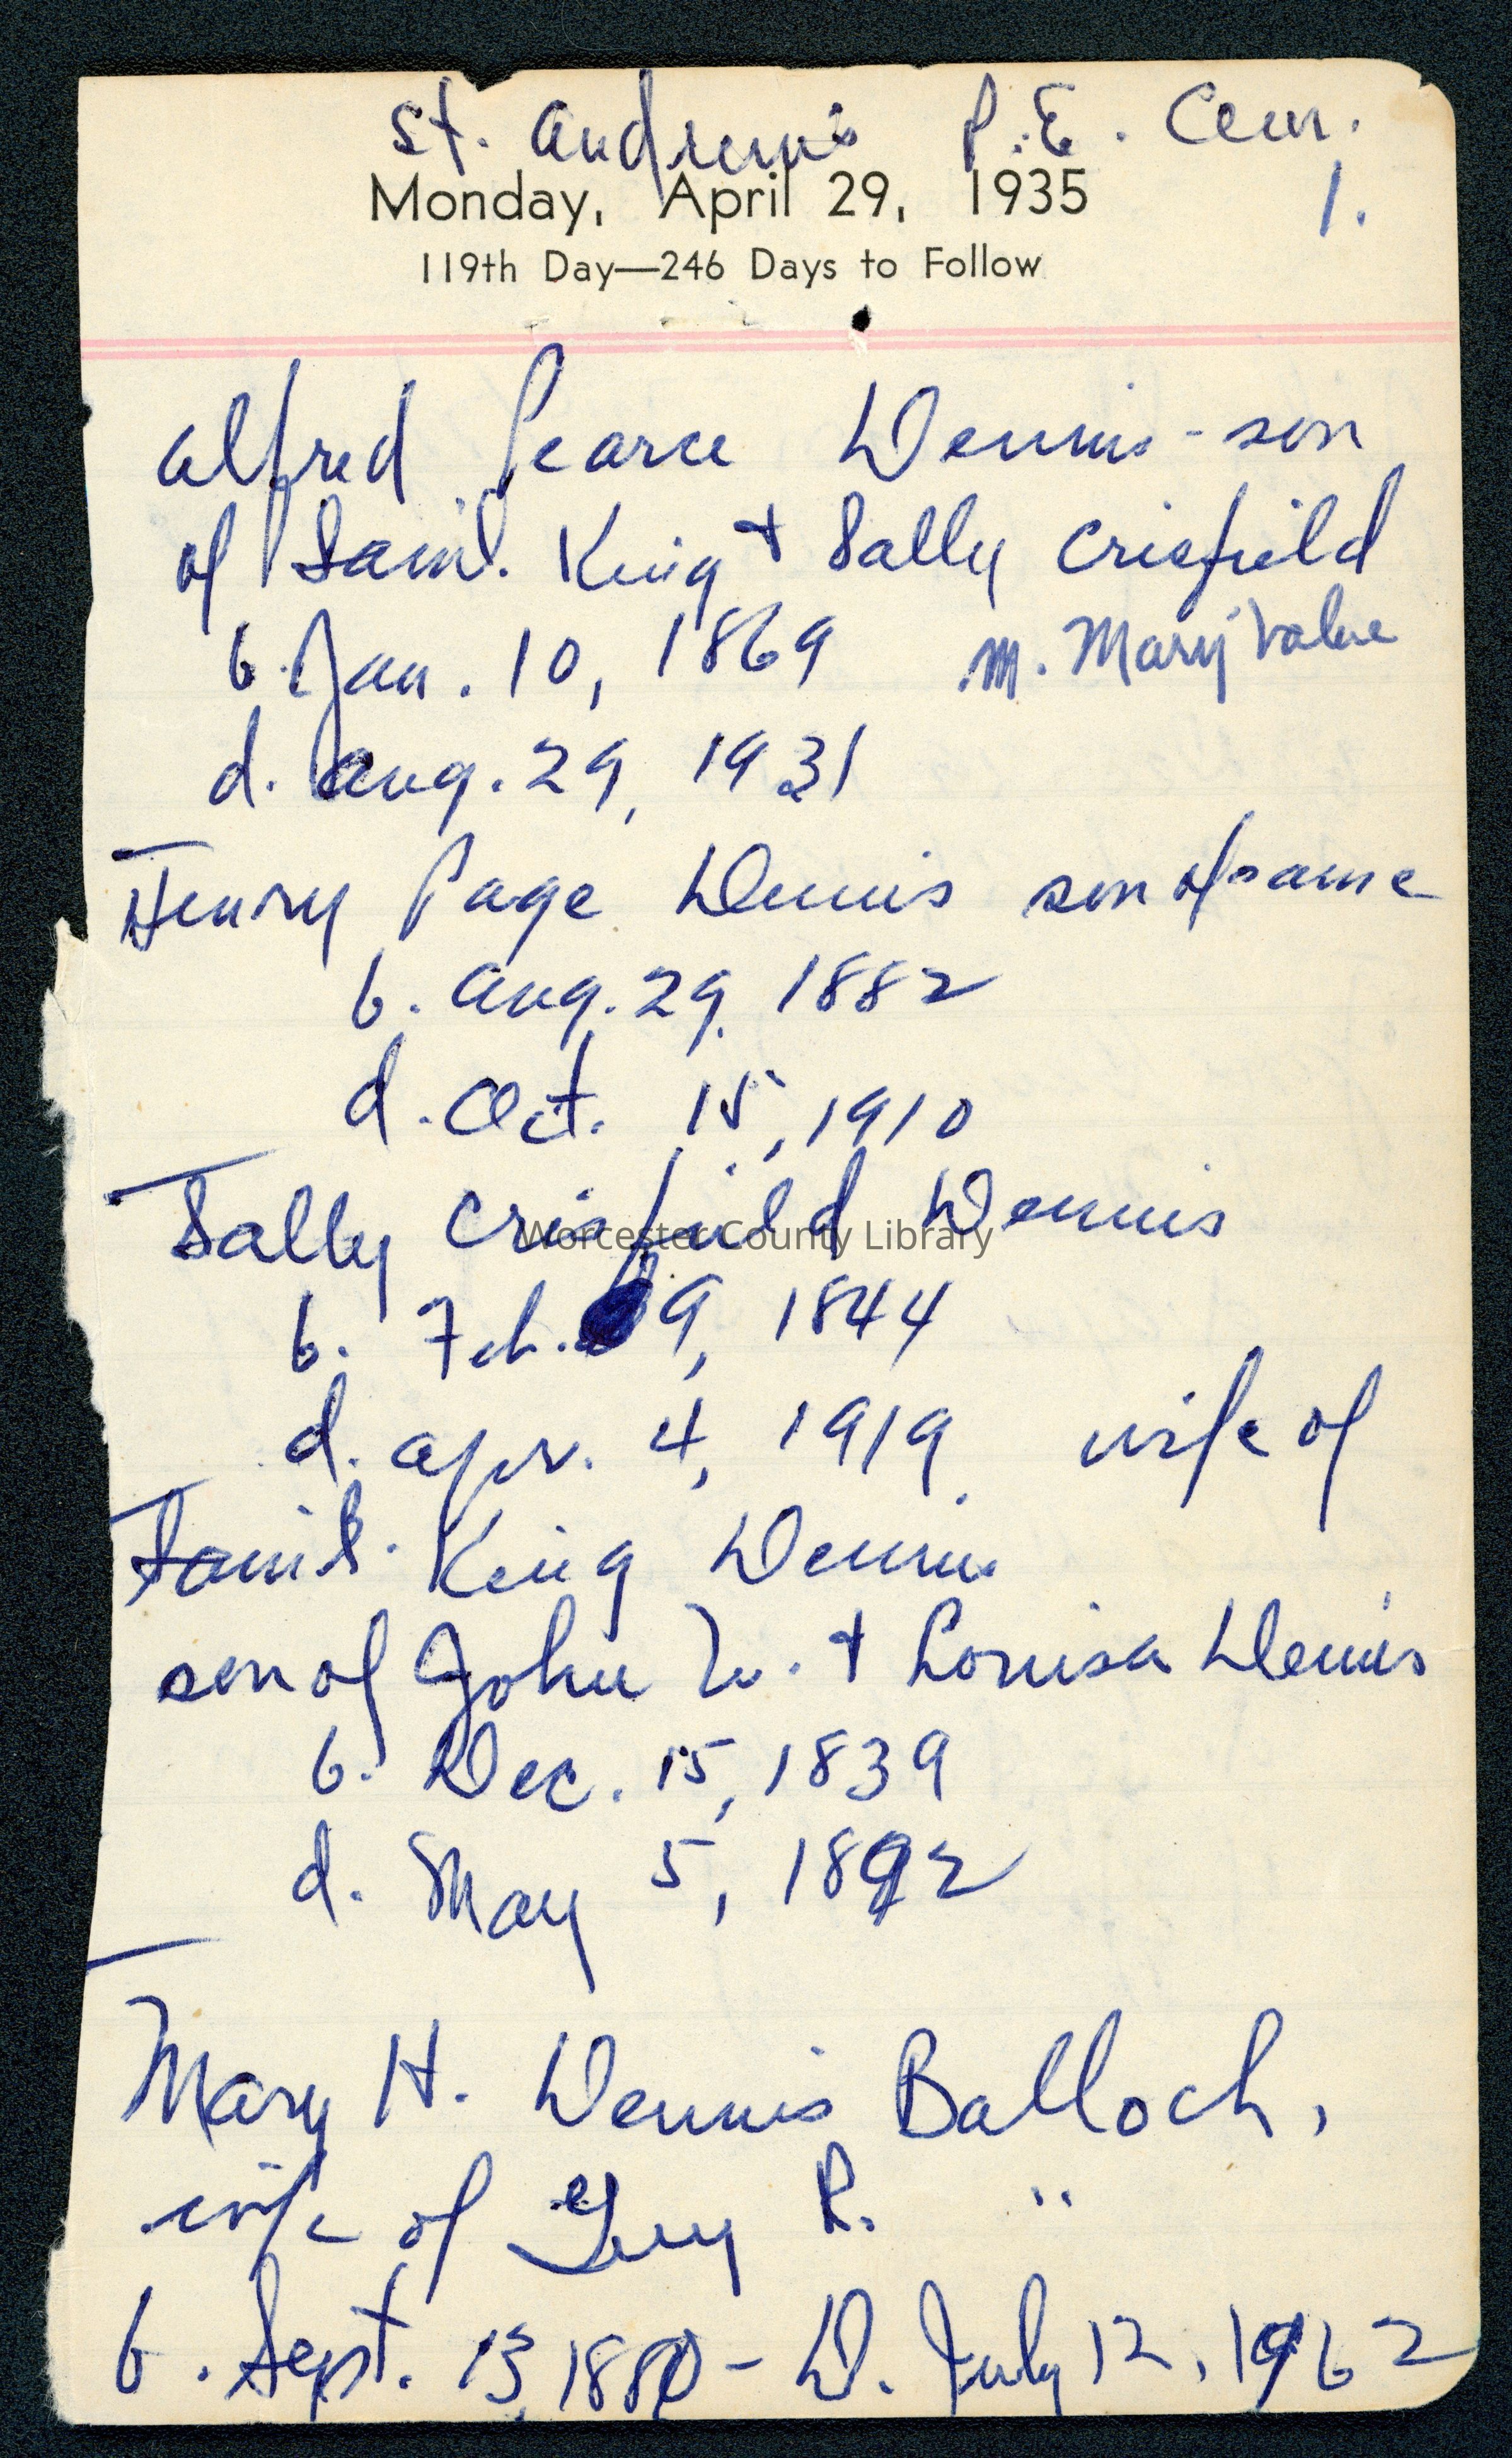 St. Andrew's P.E. Cem.
Monday, April 29, 1935
1.
119th Day—246 Days to Follow
Alfred Pearce Dennis - son
of Sam'l. King + Sally Crisfield
b. Jan. 10, 1869 m. Mary Value
d. Aug. 29, 1931
Henry Page Dennis son of same
b. Aug. 29, 1882
d. Oct. 15, 1910
Sally Crisfield Dennis
Worcester County Library
b. Feb. 9, 1844
d. Apr. 4, 1919 wife of
Sam'l. King Dennis
son of John W. + Louisa Dennis
b. Dec. 15, 1839
d. May 5, 1892
Mary H. Dennis Balloch,
wife of Guy R. "
b. Sept. 13, 1880 - D. July 12, 1962